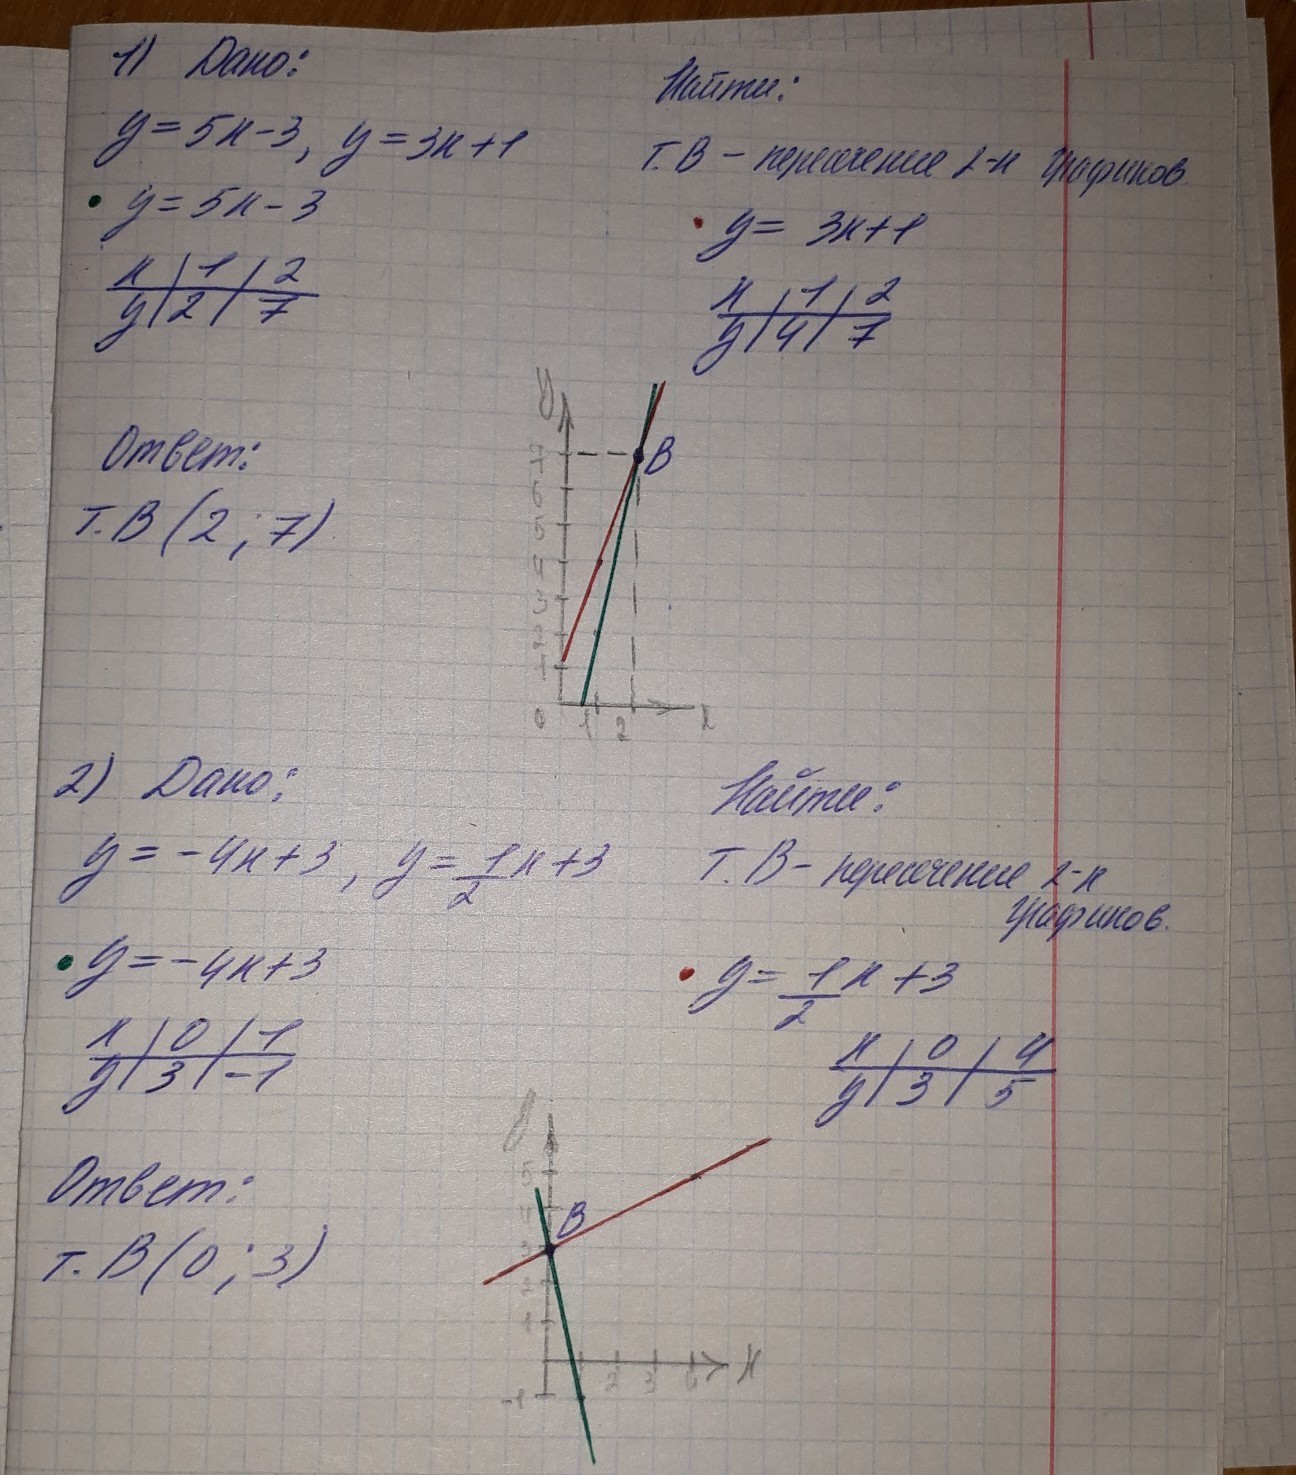 1) Дано:
Найти:
y = 5x - 3, y = 3x + 1
т. В - пересечение 2-х графиков.
• y = 5x - 3
• y = 3x + 1
x | 1 | 2
y | 2 | 7
x | 1 | 2
y | 4 | 7
Ответ:
т. В (2 ; 7)
y
7
6
5
4
3
2
1
0
1 2
x
В
2) Дано:
Найти:
y = -4x + 3, y = 1/2 x + 3
т. В - пересечение 2-х
графиков.
• y = -4x + 3
• y = 1/2 x + 3
x | 0 | 1
y | 3 | -1
x | 0 | 4
y | 3 | 5
Ответ:
т. В (0 ; 3)
y
5
4
В
3
2
1
2 3 4
x
-1